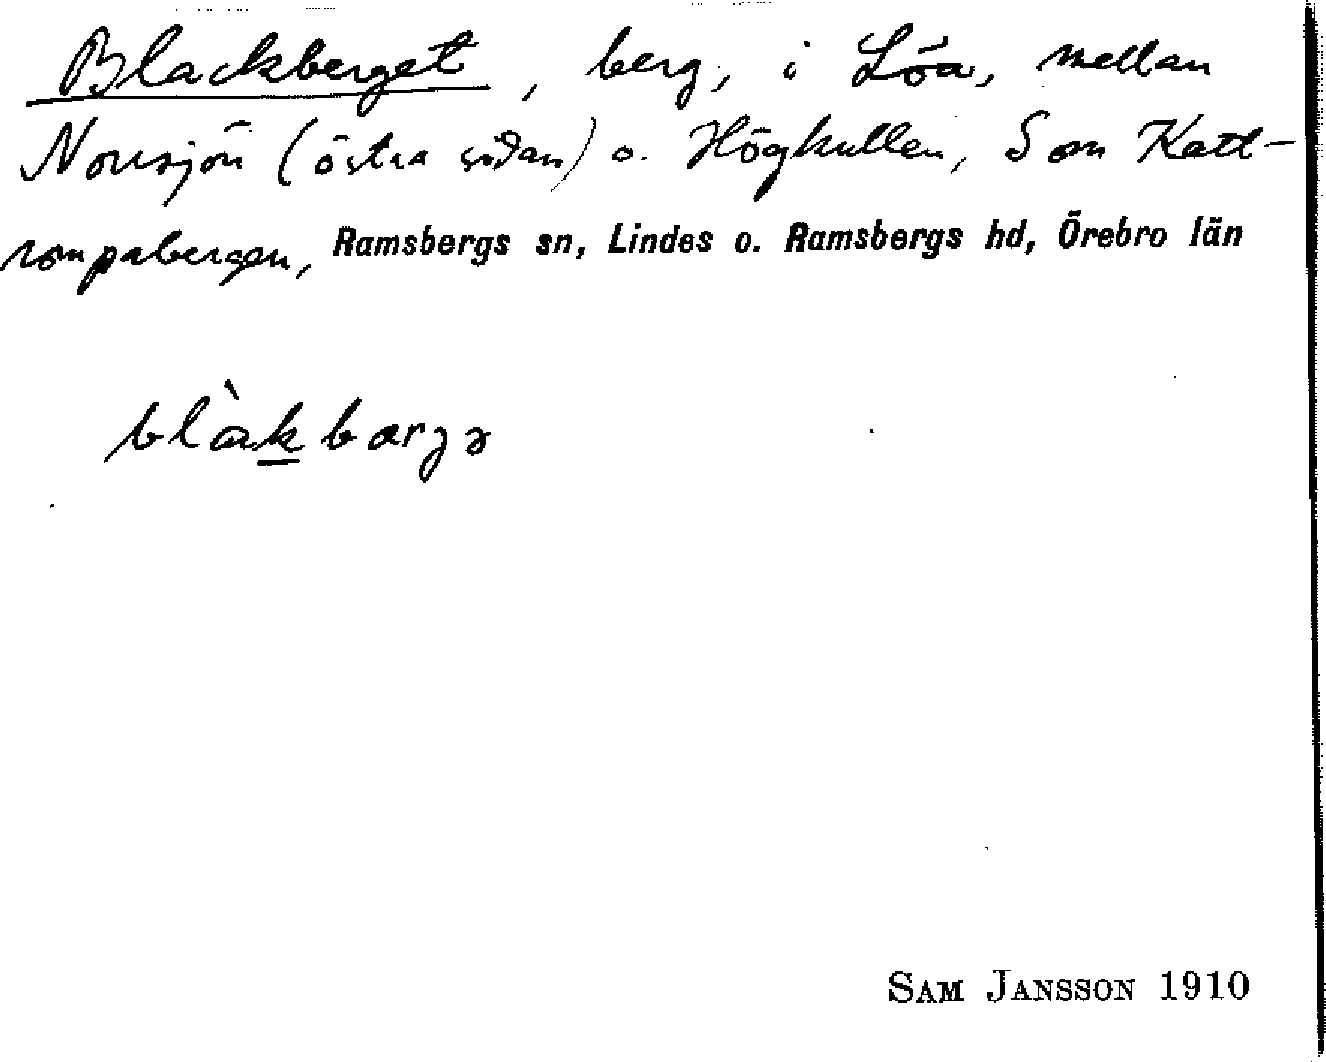 Blackberget, berg, i Löa, mellan
Norrsjön (östra sidan) o. Högkullen, S om Katt-
rumpabergen, Ramsbergs sn, Lindes o. Ramsbergs hd, Örebro län
blàkbarjə
SAM JANSSON 1910